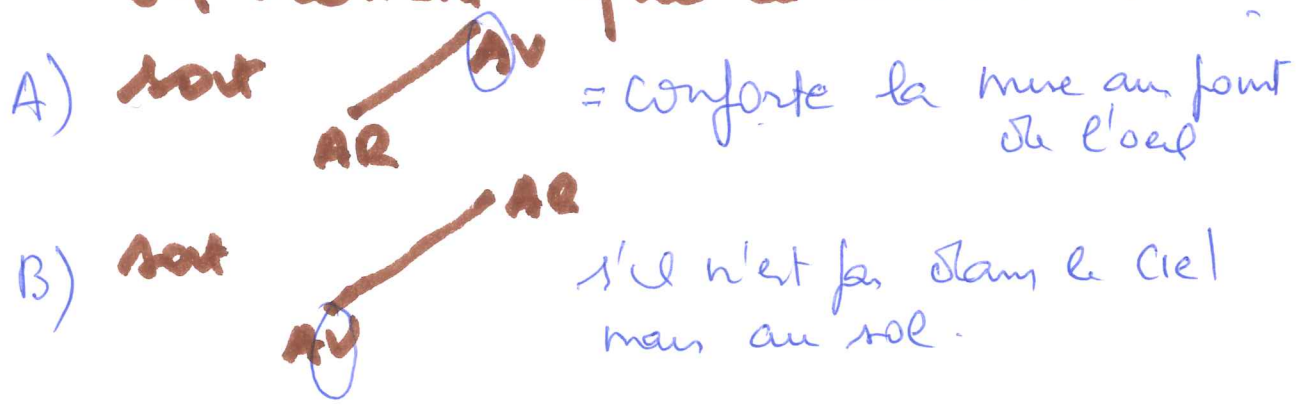 A) soit AR AV = conforte la mise au point
de l'oeil
B) soit AV AR s'il n'est pas dans le ciel
mais au sol.